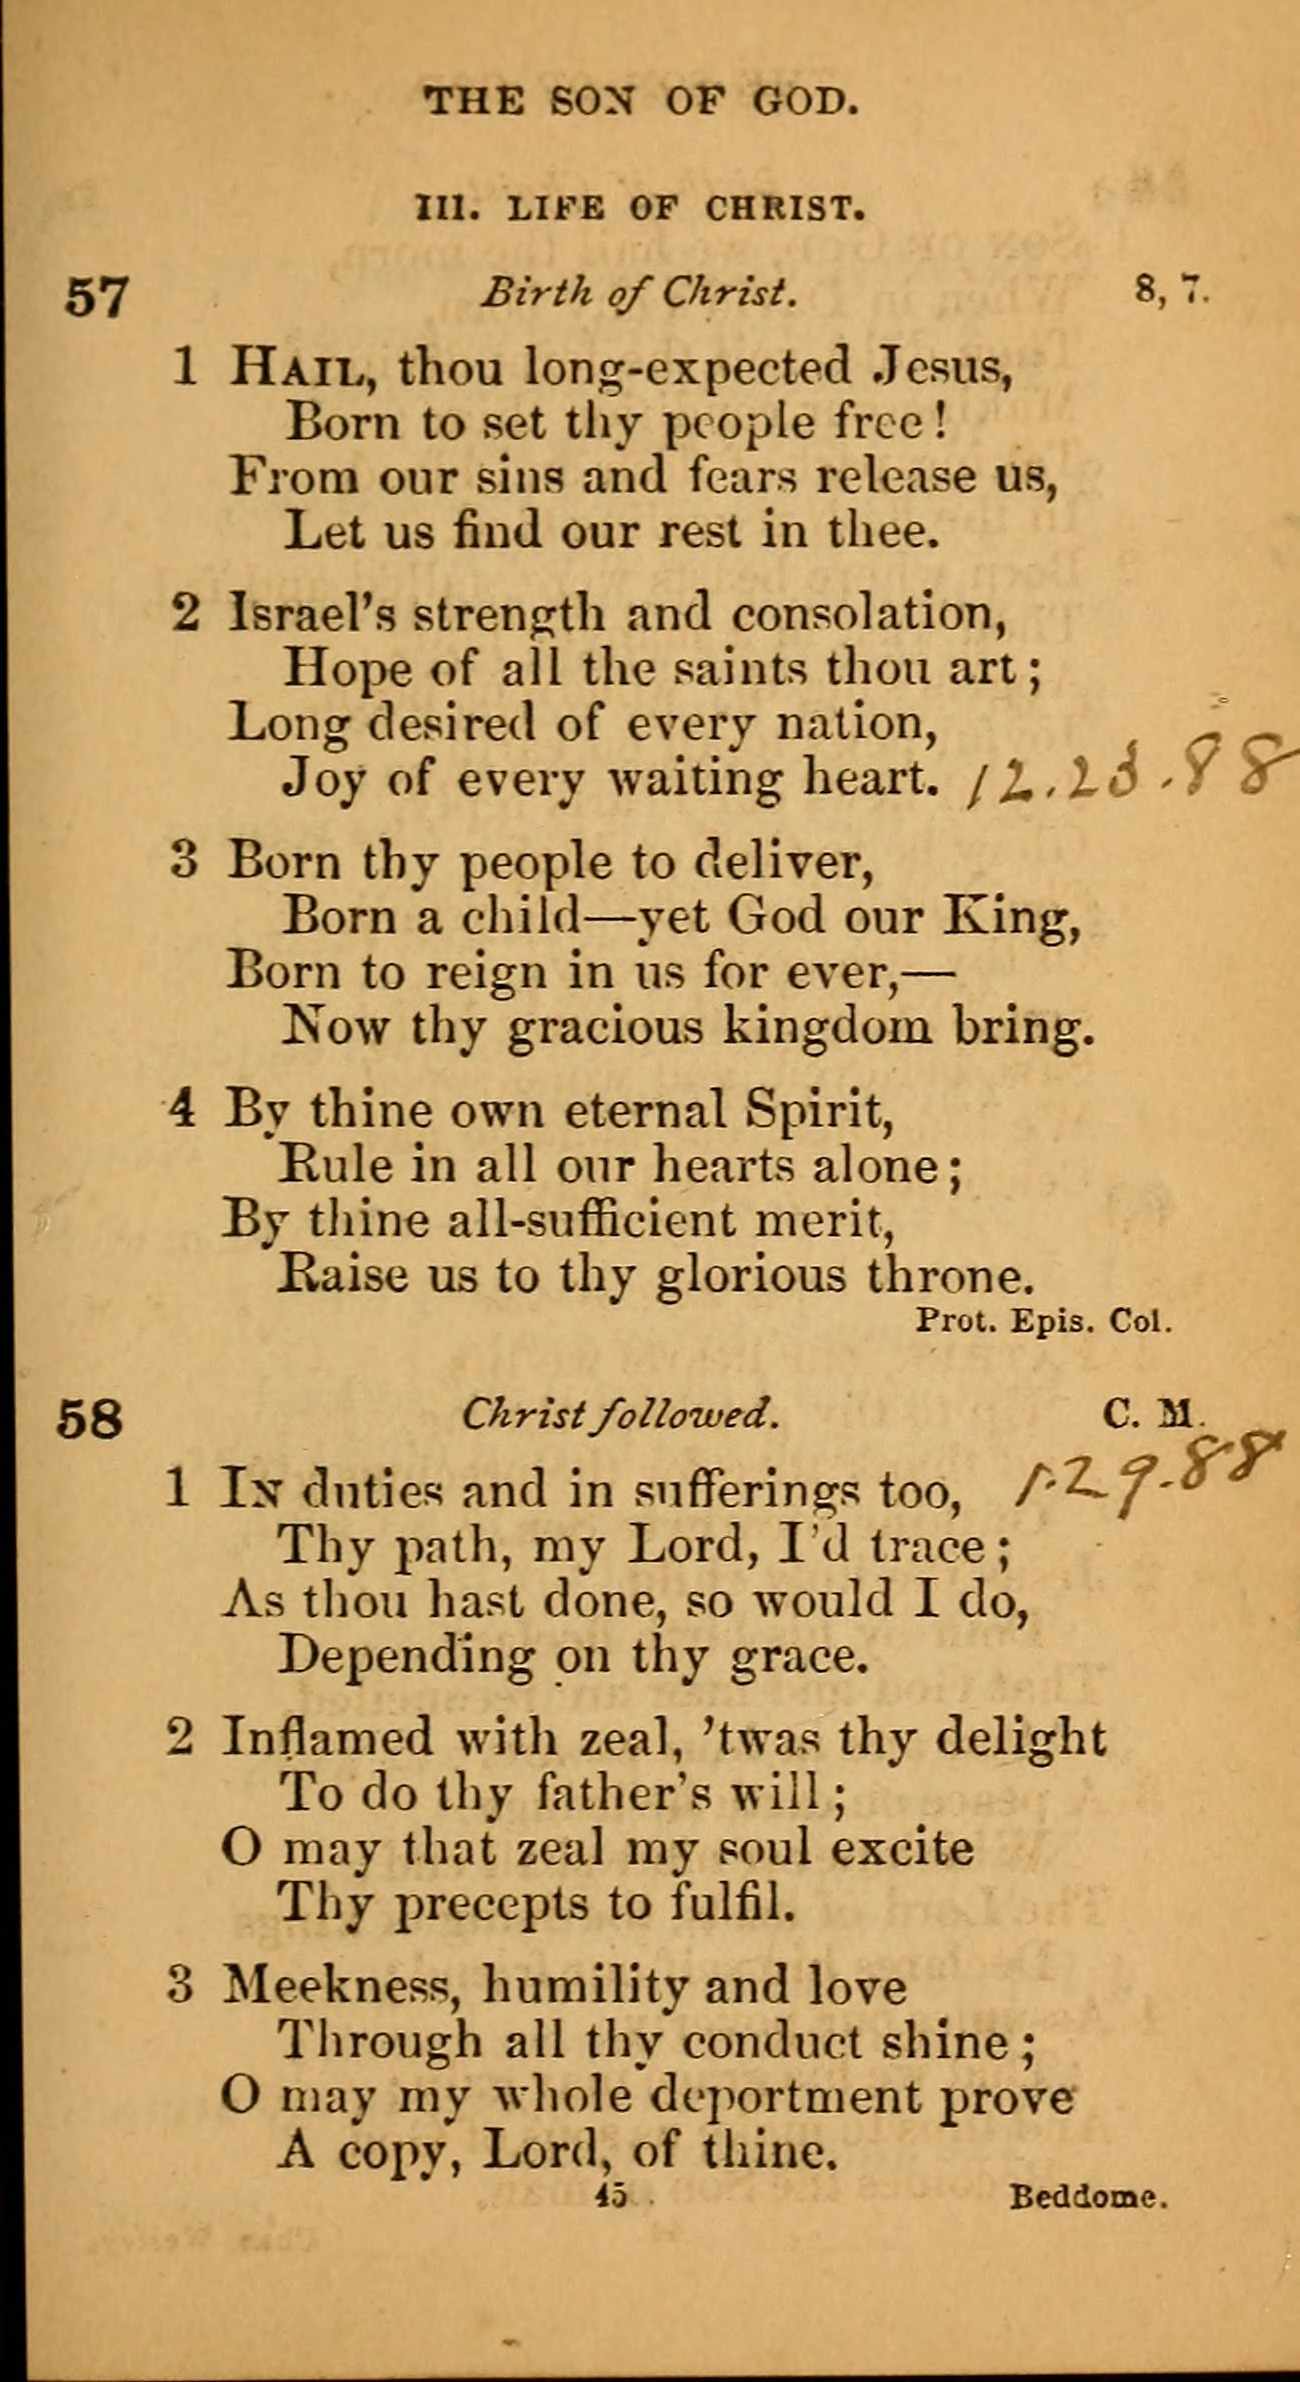 THE SON OF GOD.
III. LIFE OF CHRIST.
57 Birth of Christ. 8, 7.
1 HAIL, thou long-expected Jesus,
Born to set thy people free!
From our sins and fears release us,
Let us find our rest in thee.
2 Israel's strength and consolation,
Hope of all the saints thou art;
Long desired of every nation,
Joy of every waiting heart. 12.23.88
3 Born thy people to deliver,
Born a child—yet God our King,
Born to reign in us for ever,—
Now thy gracious kingdom bring.
4 By thine own eternal Spirit,
Rule in all our hearts alone;
By thine all-sufficient merit,
Raise us to thy glorious throne.
Prot. Epis. Col.
58 Christ followed. C. M.
1 IN duties and in sufferings too, 1.29.88
Thy path, my Lord, I'd trace;
As thou hast done, so would I do,
Depending on thy grace.
2 Inflamed with zeal, 'twas thy delight
To do thy father's will;
O may that zeal my soul excite
Thy precepts to fulfil.
3 Meekness, humility and love
Through all thy conduct shine;
O may my whole deportment prove
A copy, Lord, of thine.
45 Beddome.